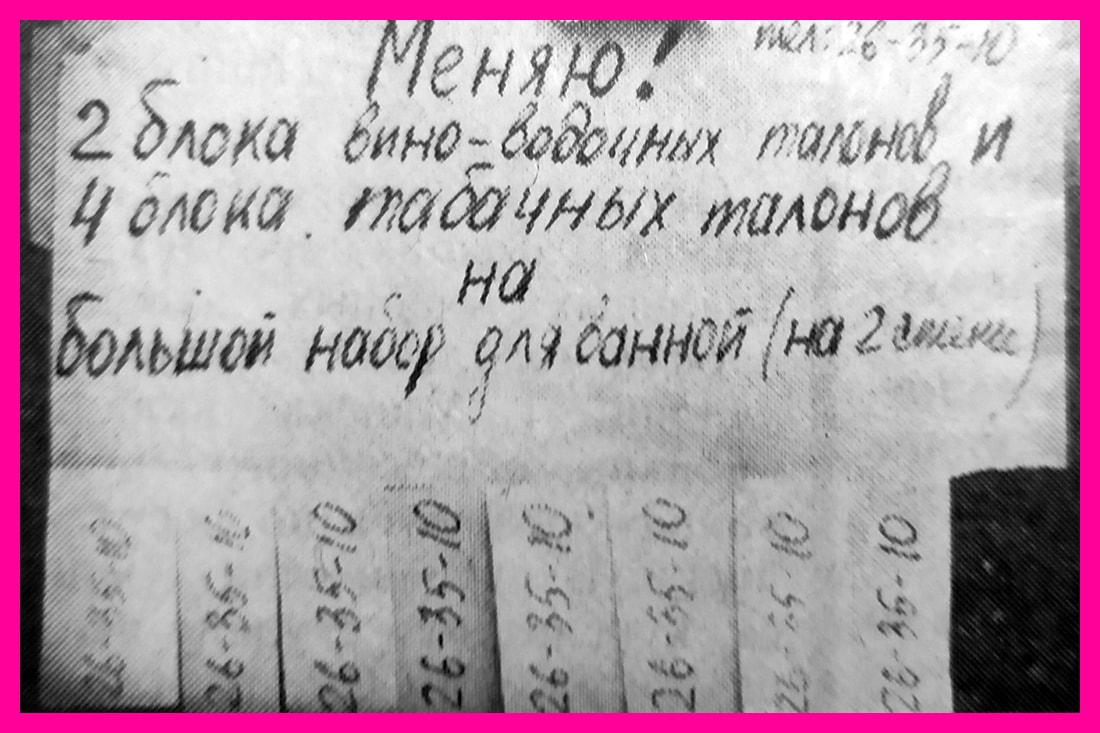 тел: 26-35-10
Меняю!
2 блока вино-водочных талонов и
4 блока табачных талонов
на
большой набор для ванной (на 2 стены)
26-35-10
26-35-10
26-35-10
26-35-10
26-35-10
26-35-10
26-35-10
26-35-10